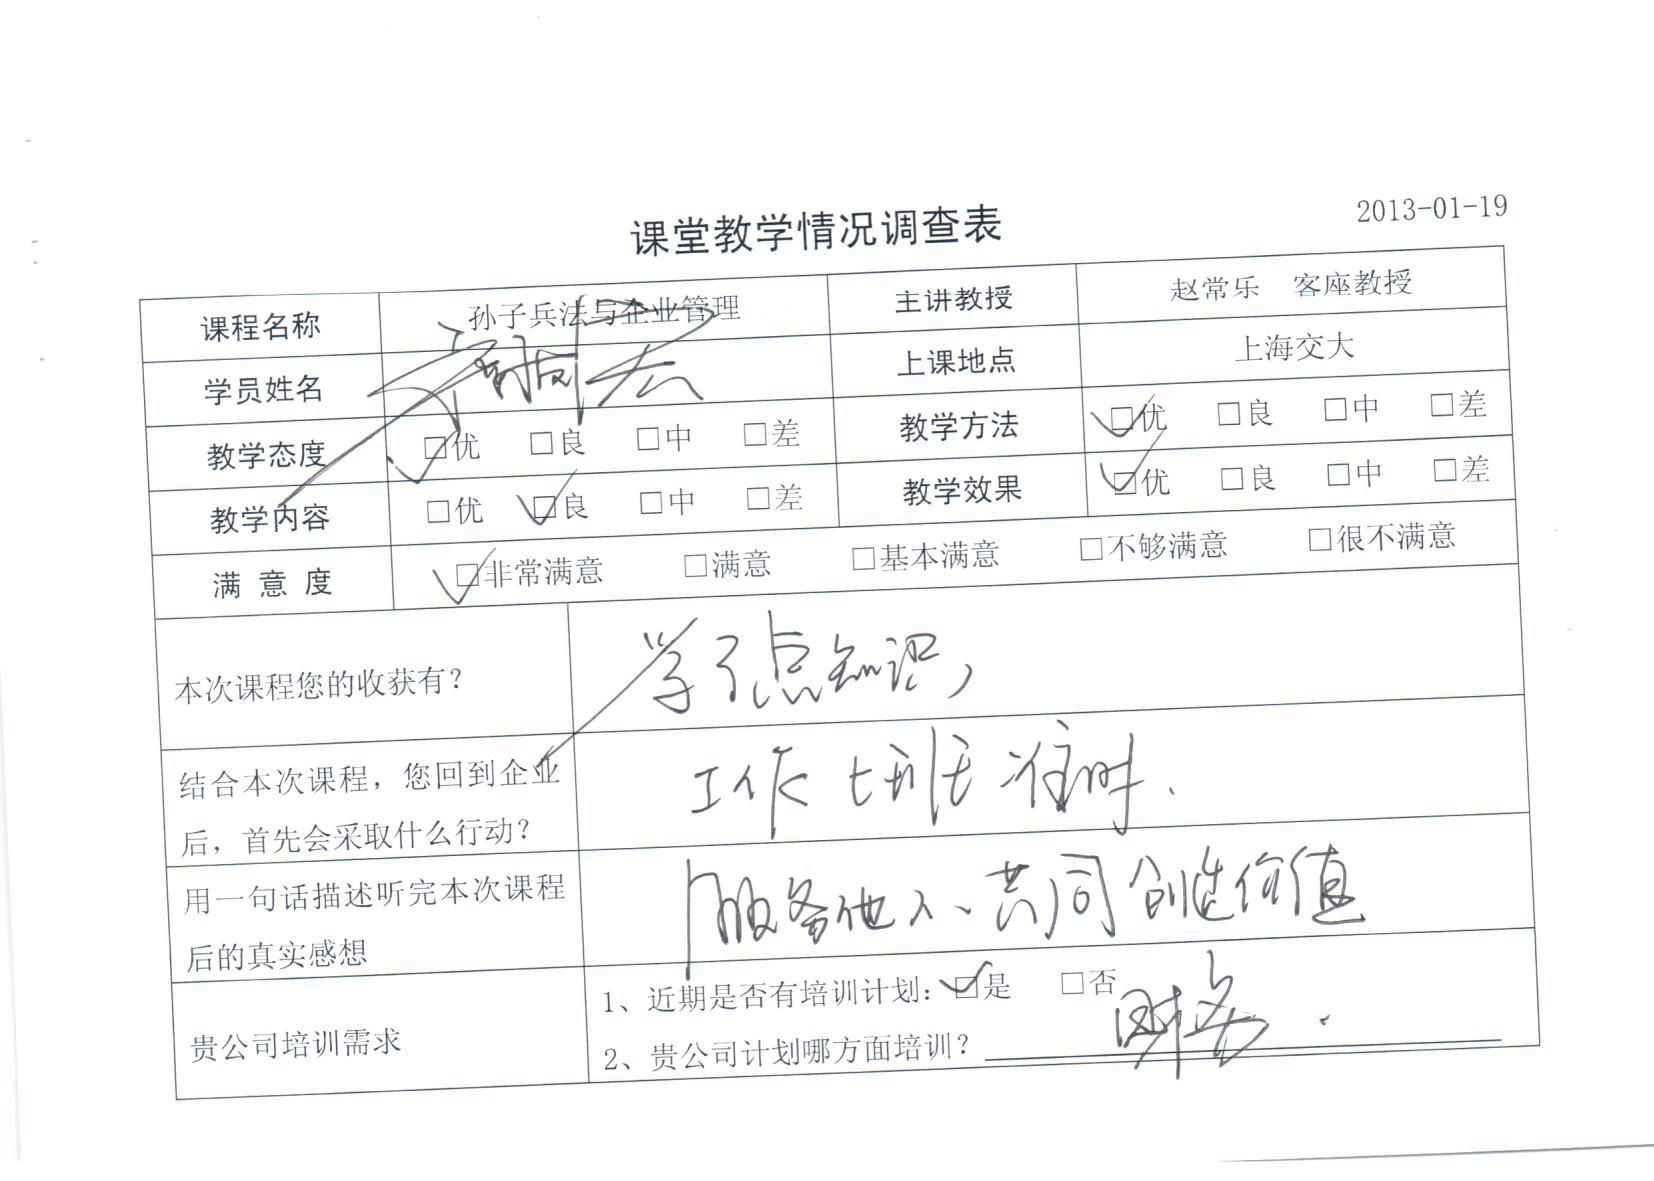 2013-01-19
课堂教学情况调查表
课程名称 孙子兵法与企业管理 主讲教授 赵常乐 客座教授
学员姓名 上课地点 上海交大
教学态度 □优 □良 □中 □差 教学方法 □优 □良 □中 □差
教学内容 □优 □良 □中 □差 教学效果 □优 □良 □中 □差
满意度 □非常满意 □满意 □基本满意 □不够满意 □很不满意
本次课程您的收获有? 学了点知识,
结合本次课程,您回到企业
后,首先会采取什么行动?
工作 上班 准时.
用一句话描述听完本次课程
后的真实感想
服务他人、共同创造价值
贵公司培训需求
1、近期是否有培训计划: □是 □否
2、贵公司计划哪方面培训? 财务.